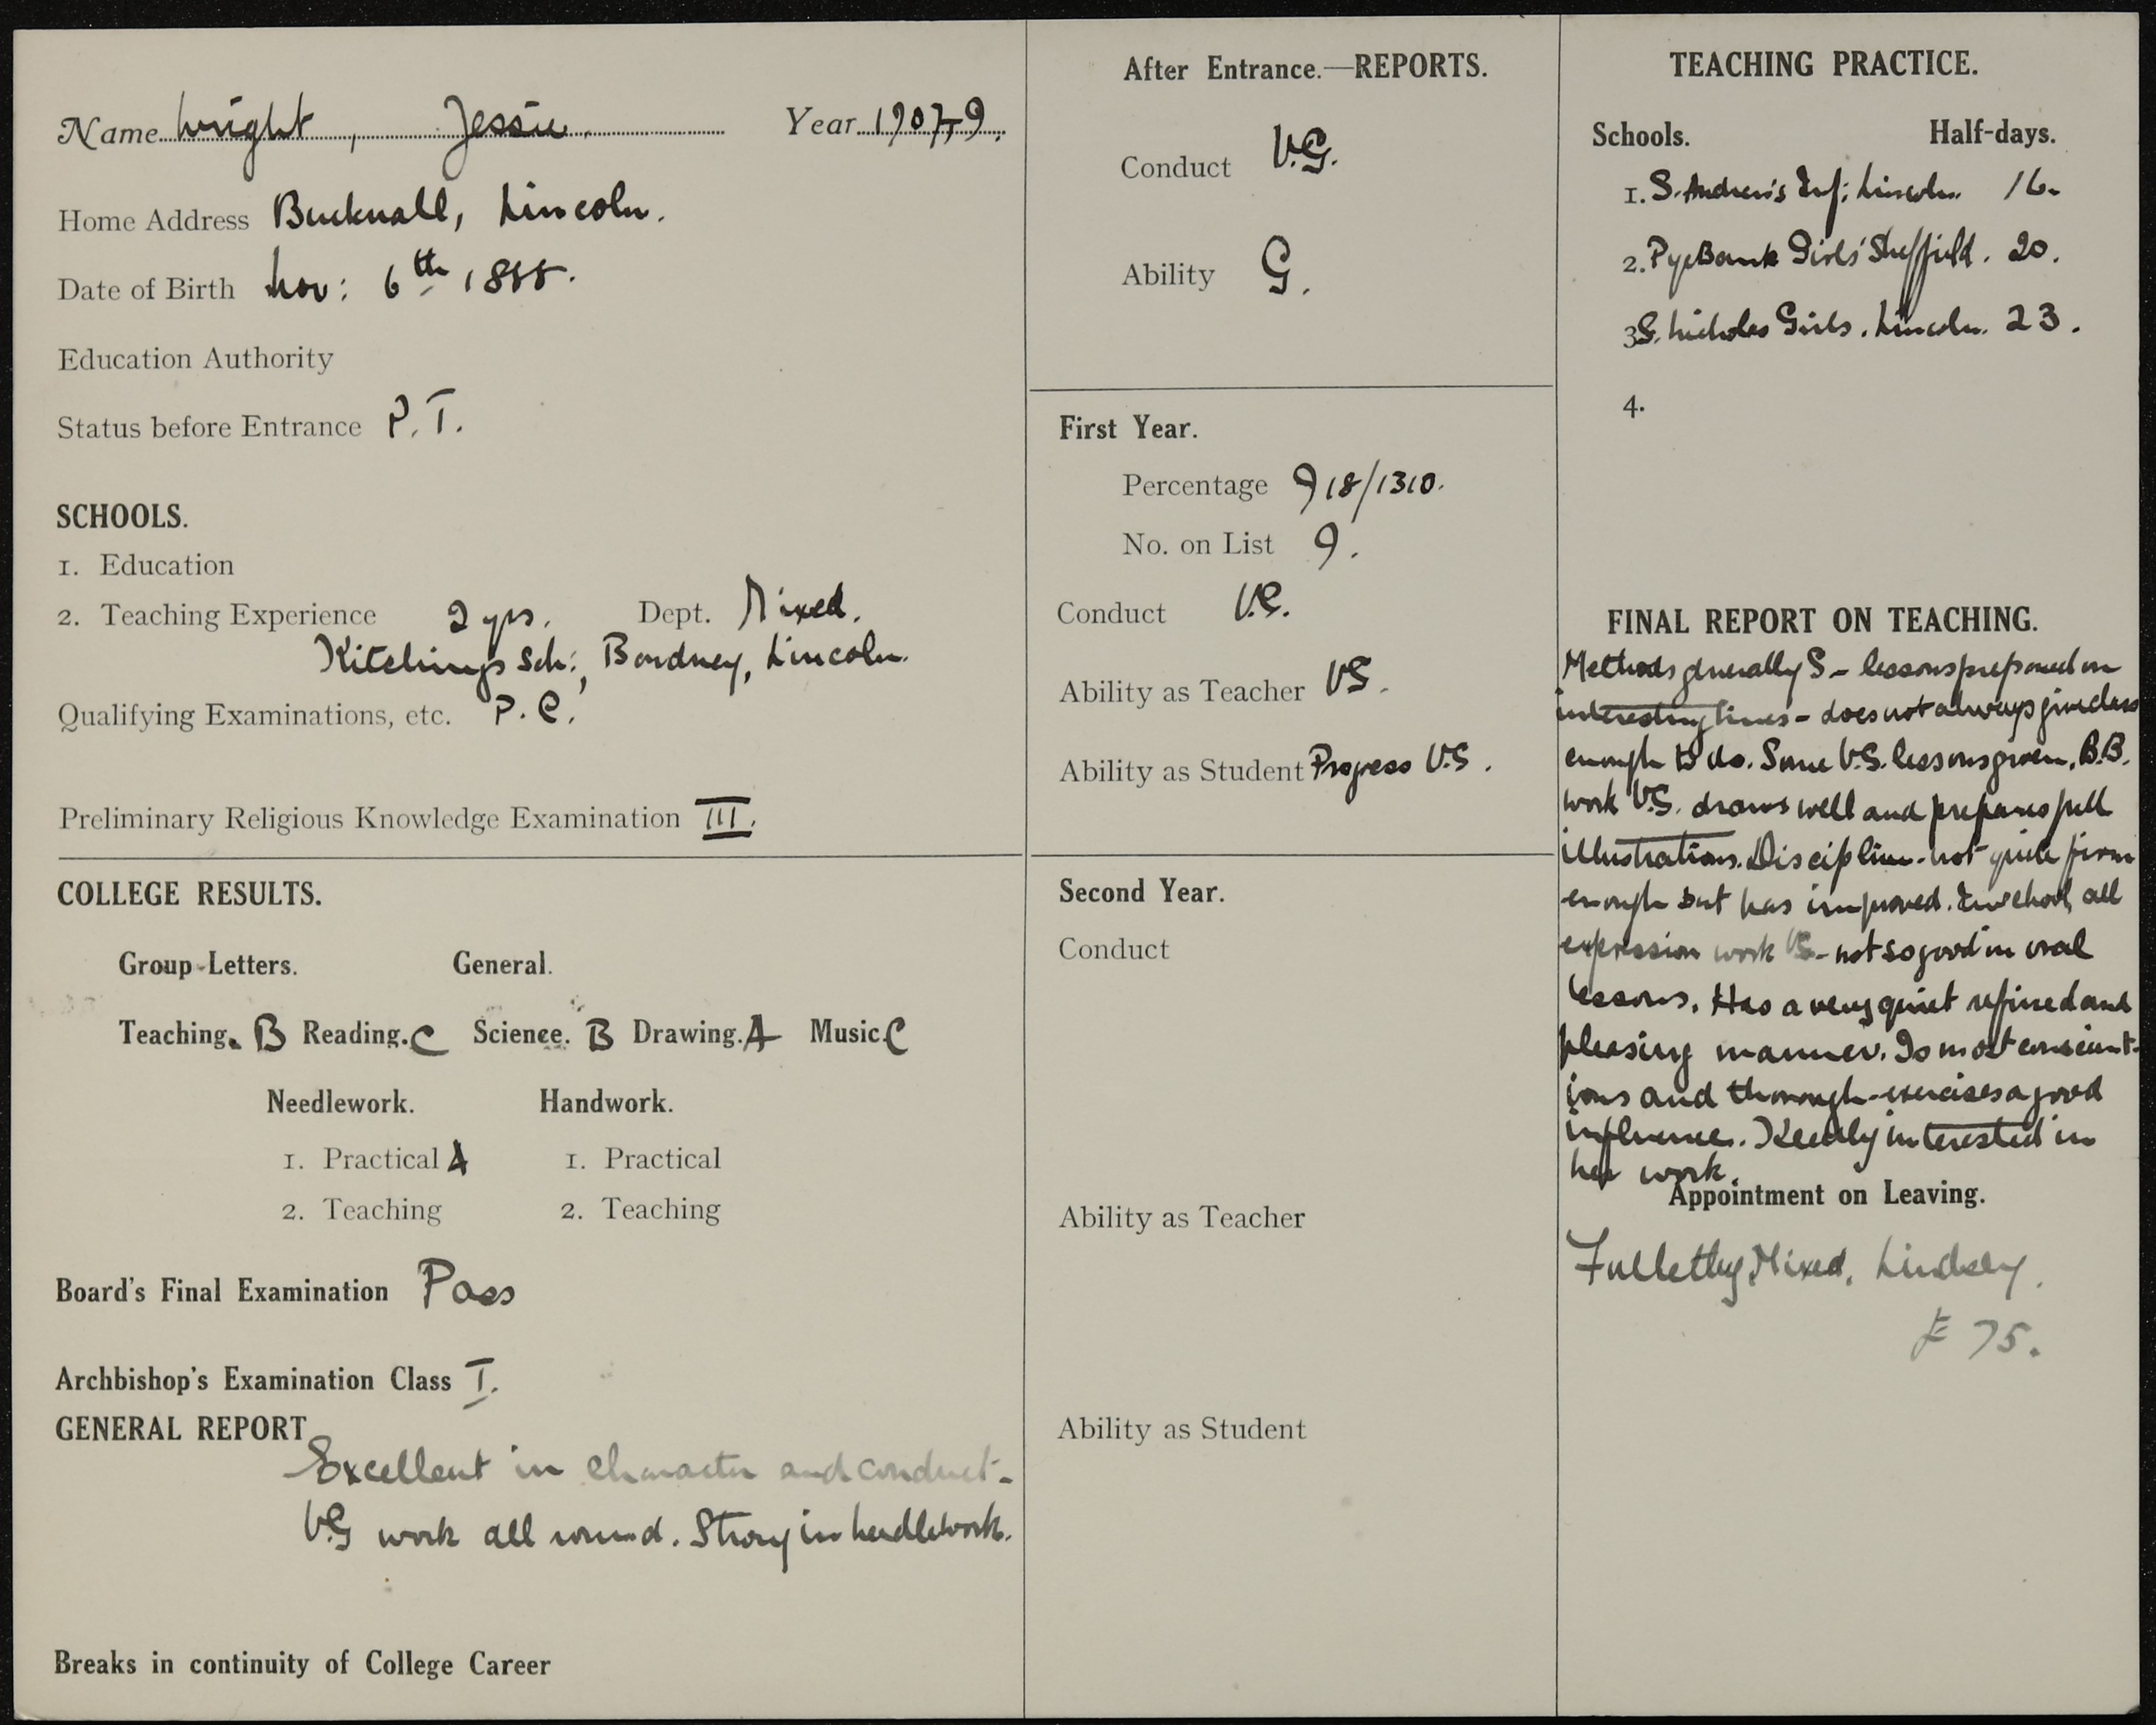 Name Wright, Jessie. Year 1907-9.
Home Address Bucknall, Lincoln.
Date of Birth Nov: 6th 1888.
Education Authority
Status before Entrance P.T.
SCHOOLS.
1. Education
2. Teaching Experience 2 yrs. Dept. Mixed.
Kitchings Sch:, Bardney, Lincoln.
Qualifying Examinations, etc. P.C.
Preliminary Religious Knowledge Examination III.
COLLEGE RESULTS.
Group-Letters. General.
Teaching. B Reading. C Science. B Drawing. A Music. C
Needlework. Handwork.
1. Practical A 1. Practical
2. Teaching 2. Teaching
Board's Final Examination Pass
Archbishop's Examination Class I.
GENERAL REPORT
Excellent in character and conduct -
V.G work all round. Strong in needlework.
Breaks in continuity of College Career
After Entrance.—REPORTS.
Conduct V.G.
Ability G.
First Year.
Percentage 918/1310.
No. on List 9.
Conduct V.G.
Ability as Teacher VG.
Ability as Student Progress V.G.
Second Year.
Conduct
Ability as Teacher
Ability as Student
TEACHING PRACTICE.
Schools. Half-days.
1. S. Andrew's Inf: Lincoln. 16.
2. Pye Bank Girls' Sheffield. 20.
3 S. Nicholas Girls. Lincoln. 23.
4.
FINAL REPORT ON TEACHING.
Methods generally G - lessons prepared on
interesting lines - does not always give class
enough to do. Some V.G. lessons given. B.B.
work V.G. draws well and prepares full
illustrations. Discipline - not quite firm
enough but has improved. In school, all
expression work VG - not so good in oral
lessons. Has a very quiet refined and
pleasing manner. Is most conscient-
ious and thorough - exercises a good
influence. Keenly interested in
her work.
Appointment on Leaving.
Fulletby Mixed, Lindsey.
£ 75.